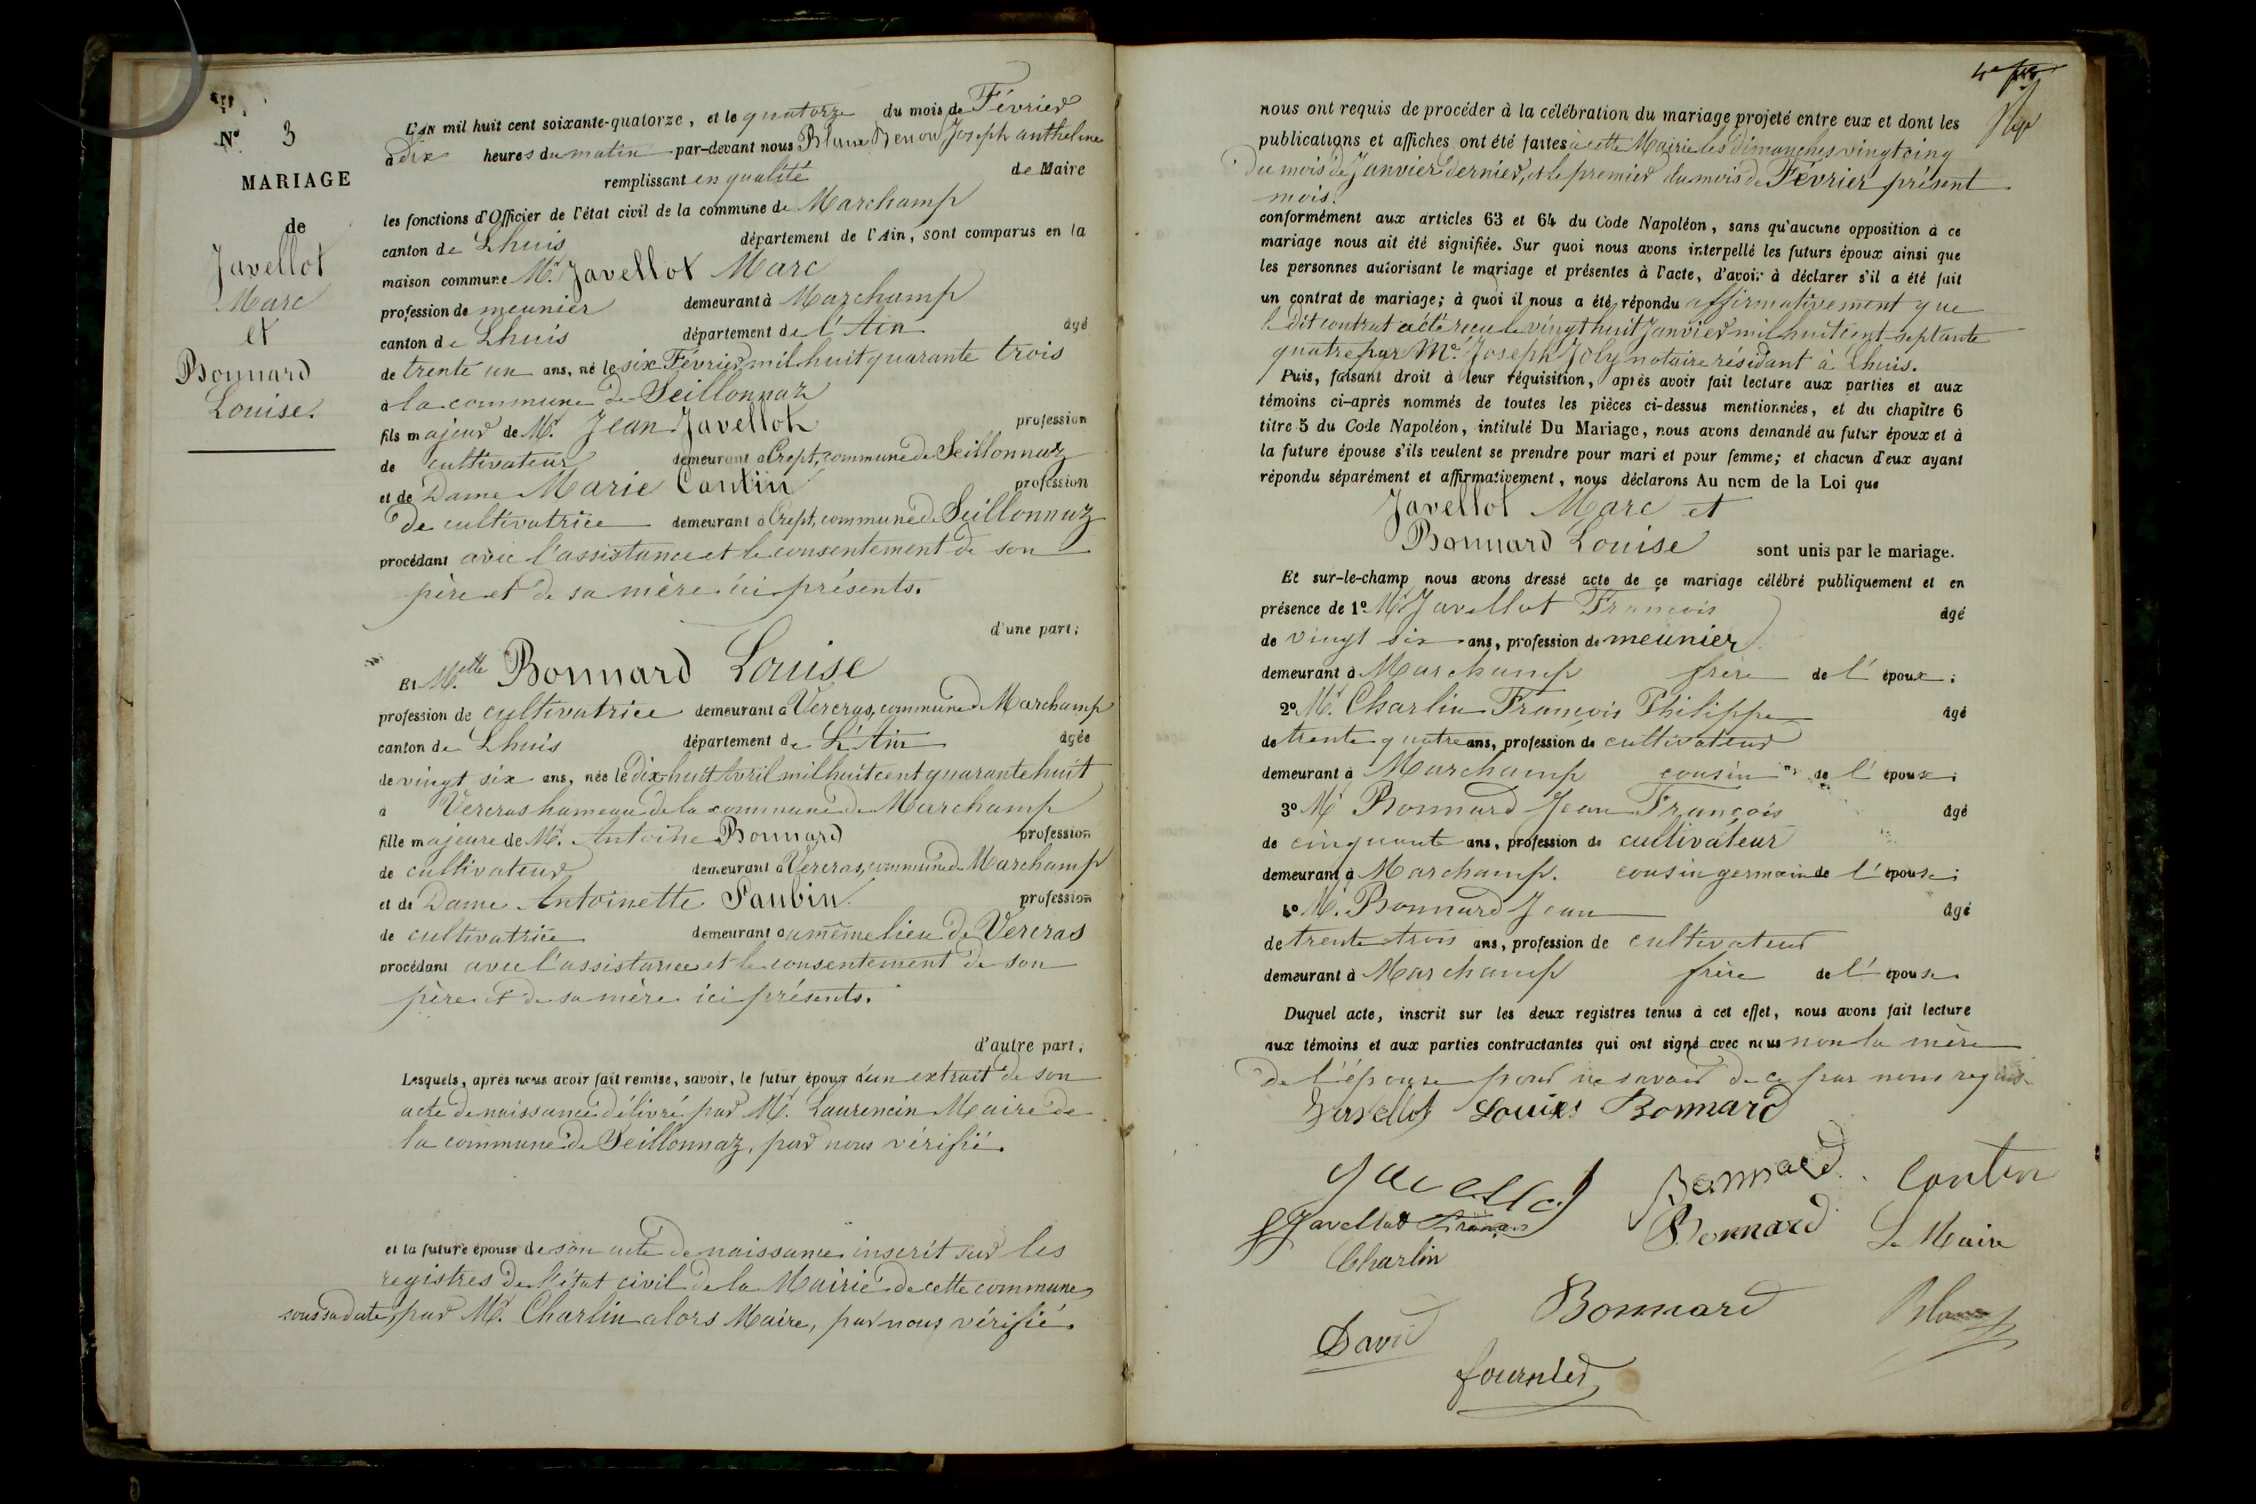 N° 3
MARIAGE
de
Javellot
Marc
et
Bonnard
Louise.
L'AN mil huit cent soixante-quatorze, et le quatorze du mois de Février
à dix heures du matin par-devant nous Blanc Benoit Joseph anthelme
remplissant en qualité de Maire
les fonctions d'Officier de l'état civil de la commune de Marchamp
canton de Lhuis département de l'Ain, sont comparus en la
maison commune Mr. Javellot Marc
profession de meunier demeurant à Marchamp
canton de Lhuis département de l'Ain âgé
de trente un ans, né le six Février mil huit quarante trois
à la commune de Seillonnaz
fils majeur de Mr. Jean Javellot profession
de cultivateur demeurant à Crept, commune de Seillonnaz
et de Dame Marie Contin profession
de cultivatrice demeurant à Crept, commune de Seillonnaz
procédant avec l'assistance et le consentement de son
père et de sa mère ici présents.
d'une part;
Et Melle Bonnard Louise
profession de cultivatrice demeurant à Vercras, commune de Marchamp
canton de Lhuis département de L'Ain âgée
de vingt six ans, née le Dix-huit Avril mil huit cent quarante huit
à Vercras hameau de la commune de Marchamp
fille majeure de Mr. Antoine Bonnard profession
de cultivateur demeurant à Vercras, commune de Marchamp
et de Dame Antoinette Paubin profession
de cultivatrice demeurant au même lieu de Vercras
procédant avec l'assistance et le consentement de son
père et de sa mère ici présents.
d'autre part;
Lesquels, après nous avoir fait remise, savoir, le futur époux d'un extrait de son
acte de naissance délivré par Mr. Laurencin Maire de
la commune de Seillonnaz, par nous vérifié.
et la future épouse de son acte de naissance inscrit sur les
registres de l'état civil de la Mairie de cette commune
sous sa date, par Mr. Charlin alors Maire, par nous vérifié.
nous ont requis de procéder à la célébration du mariage projeté entre eux et dont les
publications et affiches ont été faites à cette Mairie les dimanches vingt cinq
du mois de Janvier dernier, et le premier du mois de Février présent
mois.
conformément aux articles 63 et 64 du Code Napoléon, sans qu'aucune opposition à ce
mariage nous ait été signifiée. Sur quoi nous avons interpellé les futurs époux ainsi que
les personnes autorisant le mariage et présentes à l'acte, d'avoir à déclarer s'il a été fait
un contrat de mariage; à quoi il nous a été répondu affirmativement que
le dit contrat a été reçu le vingt huit Janvier mil huit cent septante
quatre par Me. Joseph Joly notaire résidant à Lhuis.
Puis, faisant droit à leur réquisition, après avoir fait lecture aux parties et aux
témoins ci-après nommés de toutes les pièces ci-dessus mentionnées, et du chapitre 6
titre 5 du Code Napoléon, intitulé Du Mariage, nous avons demandé au futur époux et à
la future épouse s'ils veulent se prendre pour mari et pour femme; et chacun d'eux ayant
répondu séparément et affirmativement, nous déclarons Au nom de la Loi que
Javellot Marc et
Bonnard Louise sont unis par le mariage.
Et sur-le-champ nous avons dressé acte de ce mariage célébré publiquement et en
présence de 1° Mr Javellot François âgé
de vingt six ans, profession de meunier
demeurant à Marchamp frère de l'époux;
2° Mr. Charlin François Philippe âgé
de trente quatre ans, profession de cultivateur
demeurant à Marchamp cousin de l'époux;
3° Mr Bonnard Jean François âgé
de cinquante ans, profession de cultivateur
demeurant à Marchamp. cousin germain de l'épouse;
4° Mr. Bonnard Jean âgé
de trente trois ans, profession de cultivateur
demeurant à Marchamp frère de l'épouse
Duquel acte, inscrit sur les deux registres tenus à cet effet, nous avons fait lecture
aux témoins et aux parties contractantes qui ont signé avec nous non la mère
de l'épouse pour ne savoir de ce par nous requis.
Javellot Louise Bonnard
Javellot Bonnard Contin
Javellot François Bonnard Le Maire
Charlin
Bonnard Blanc
David
fournier